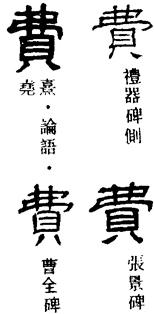 費
禮器碑側
費
張景碑
費
熹・論語・
堯
費
曹全碑